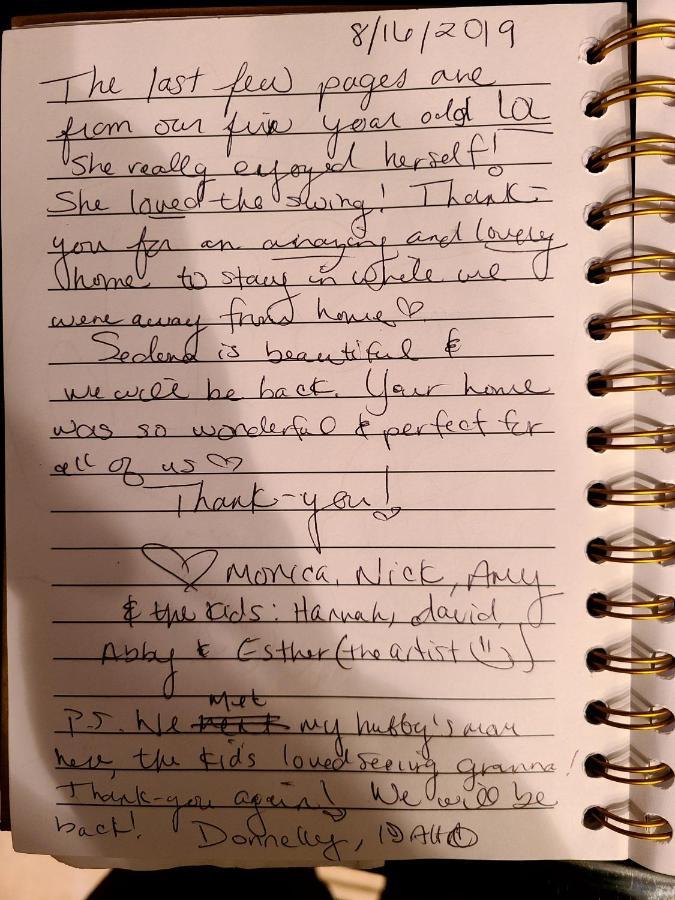 8/16/2019
The last few pages are
from our five year old lol
She really enjoyed herself!
She loved the swing! Thank-
you for an amazing and lovely
home to stay in while we
were away from home ♡
Sedona is beautiful &
we will be back. Your home
was so wonderful & perfect for
all of us ♡
Thank-you!
♡ Monica, Nick, Amy
& the kids: Hannah, david,
Abby & Esther (the artist )
Met
P.S. We my hubby's mom
here, the kids loved seeing gramma!
Thank-you again! We will be
back! Donnelly, IDAHO